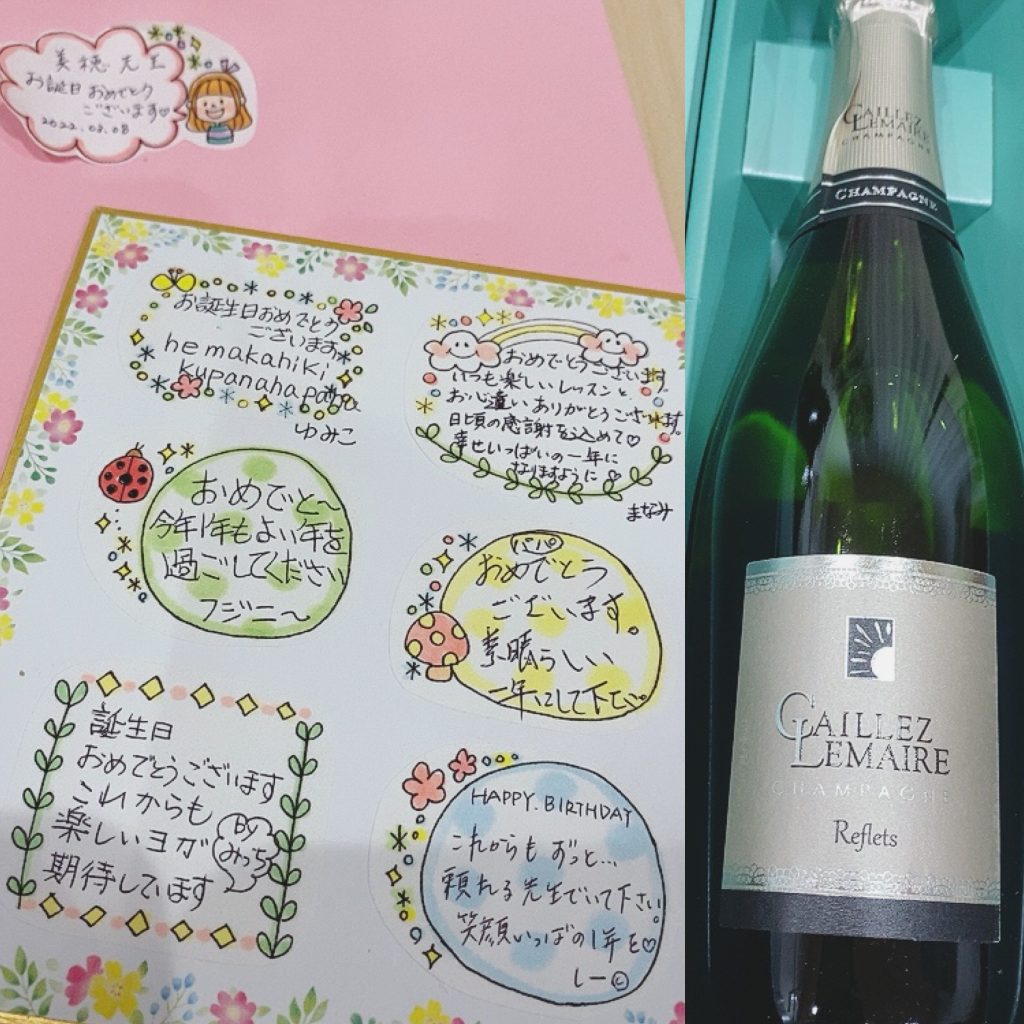 美穂先生
お誕日おめでとう
ございます♡
2022.03.08
お誕生日おめでとう
ございます
he makahiki
kupanaha
ゆみこ
おめでとうございます。
いつも楽しいレッスンと
お心遣いありがとうございます。
日頃の感謝を込めて♡
幸せいっぱいの一年に
なりますように
まなみ
おめでと〜
今年1年もよい年を
過ごしてください
フジニ〜
パパ
おめでとう
ございます。
素晴らしい
一年にして下さい。
誕生日
おめでとうございます
これからも
楽しいヨガ
期待しています
By
みっち
HAPPY.BIRTHDAY
これからもずっと…
頼れる先生でいて下さい。
笑顔いっぱの1年を♡
しー©
CAILLEZ
LEMAIRE
CHAMPAGNE
CHAMPAGNE
CAILLEZ
LEMAIRE
CHAMPAGNE
Reflets